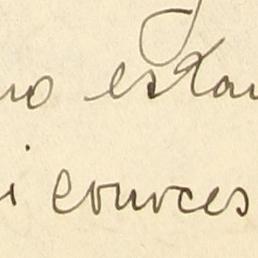 no estan
i conoces